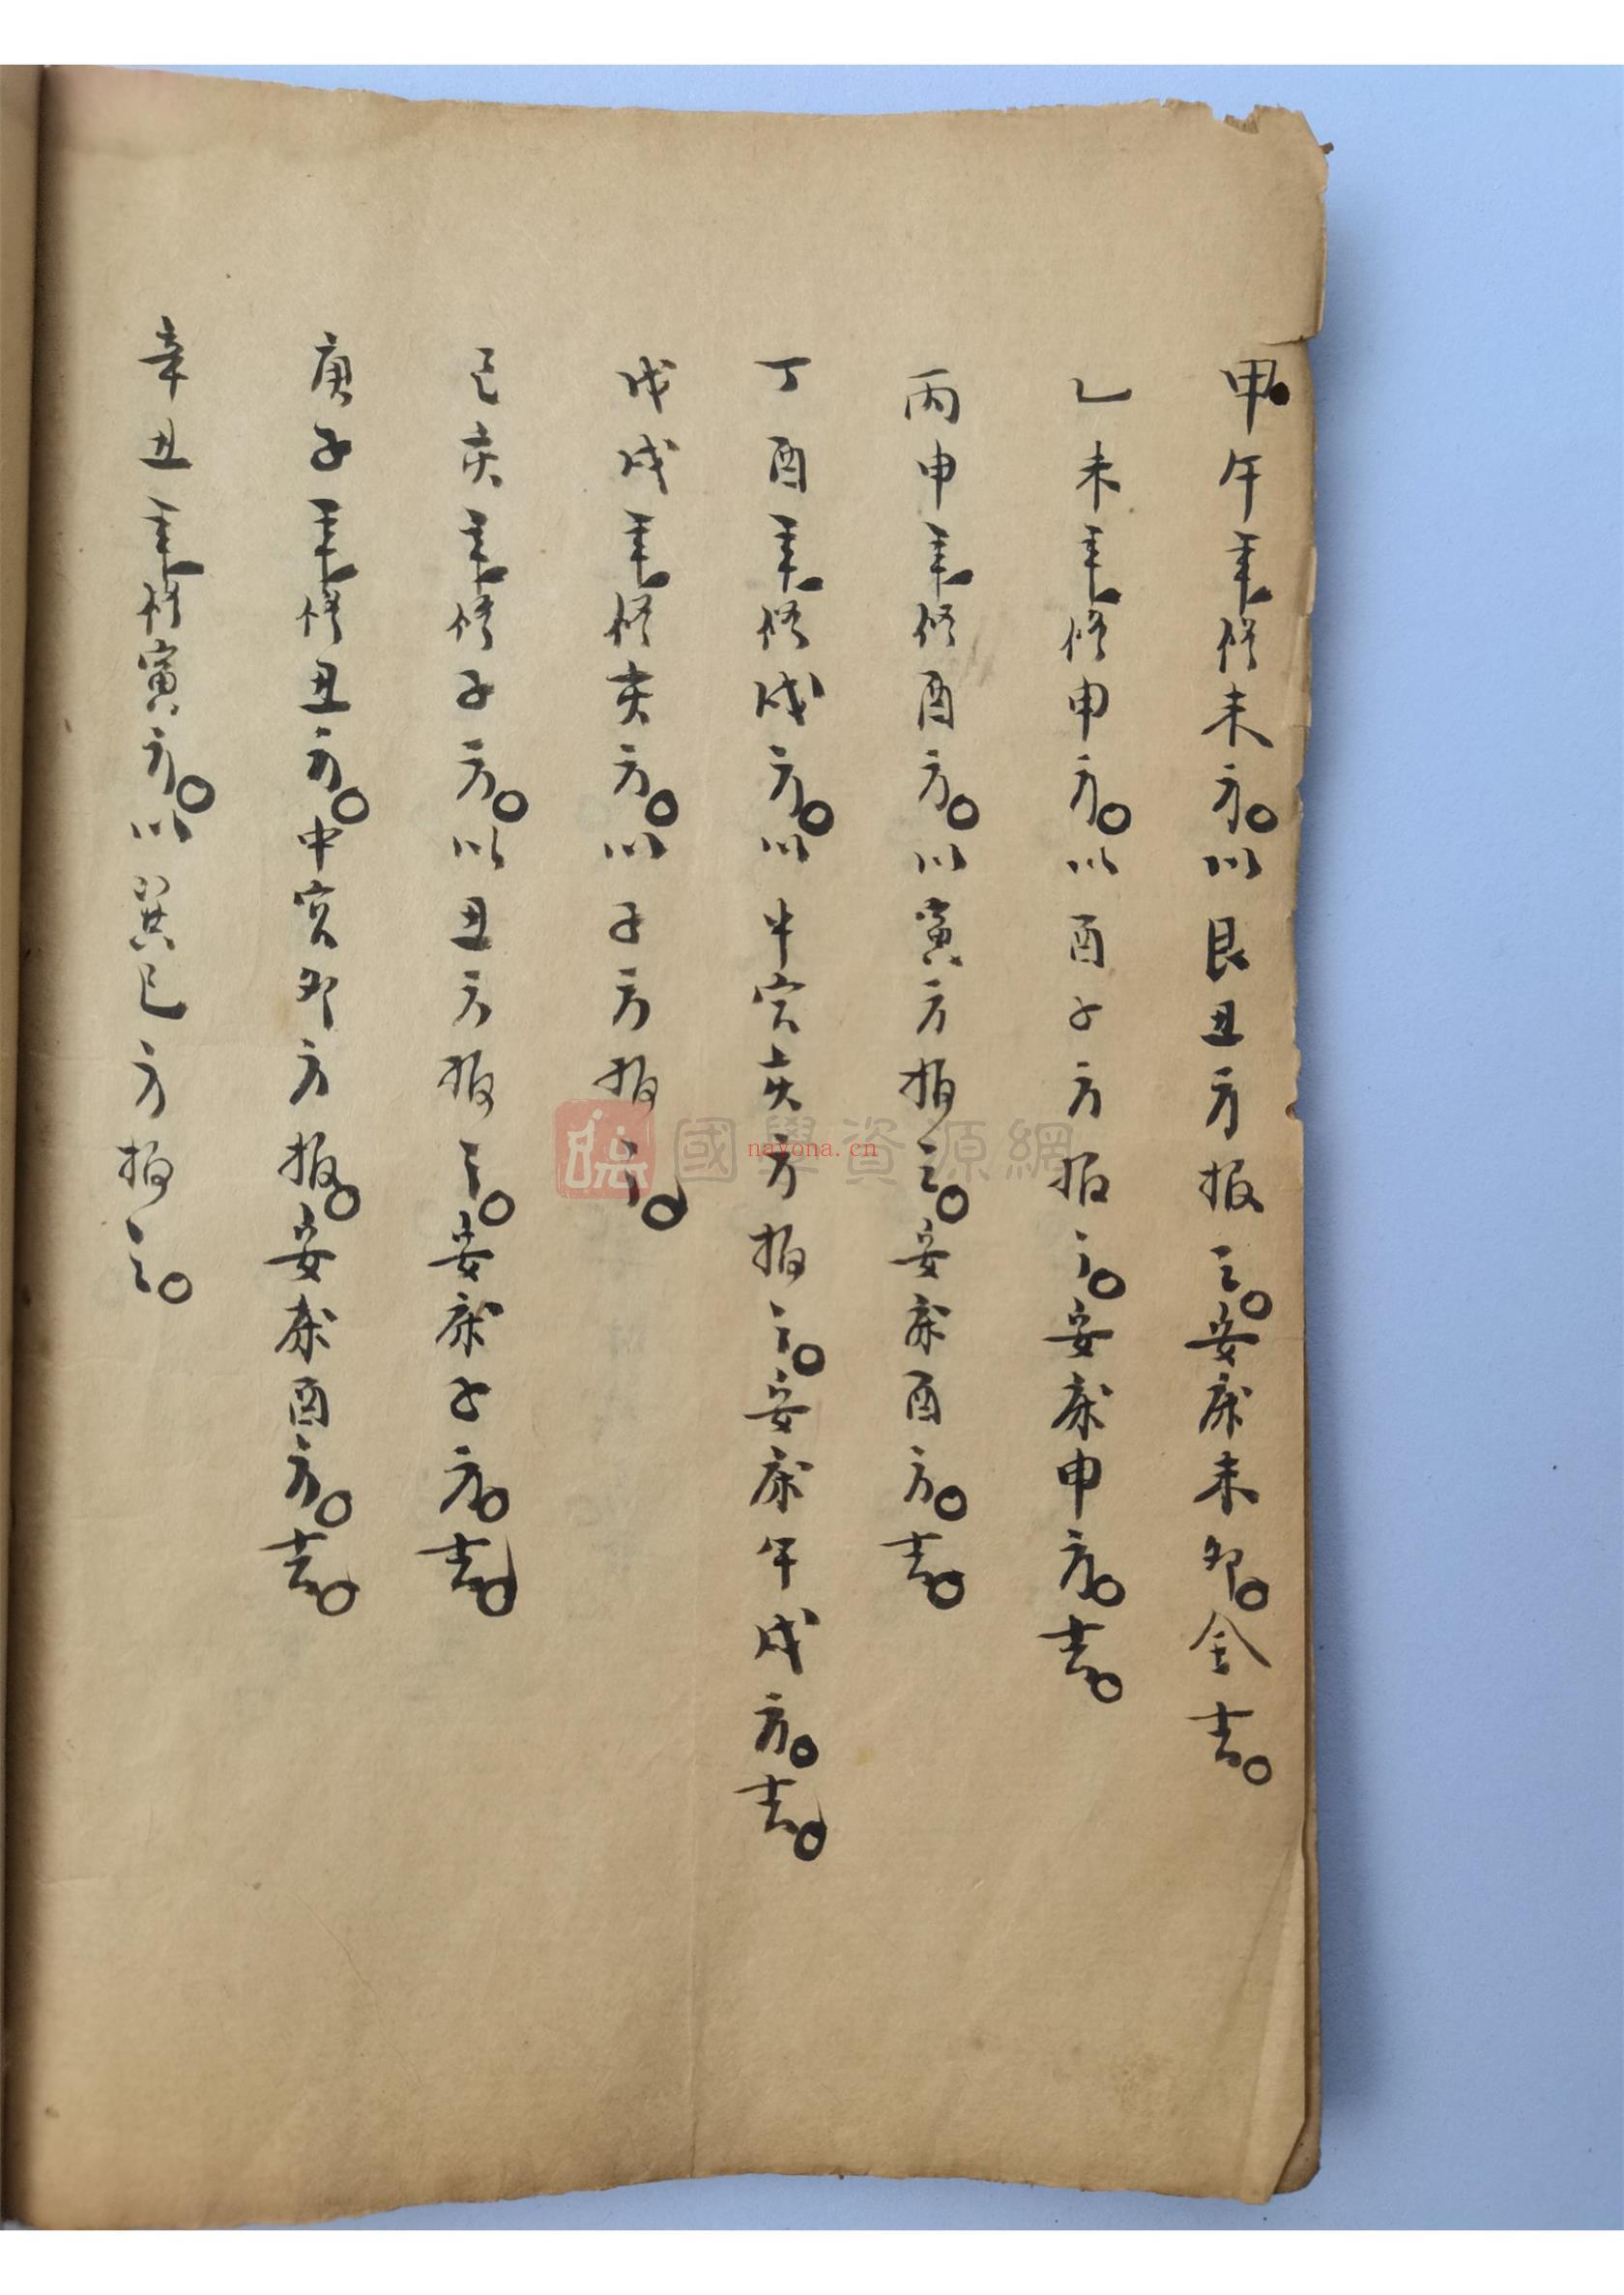 甲午年修未方。以艮丑方报之。安床未卯。全吉。
乙未年修申方。以酉子方报之。安床申方。吉。
丙申年修酉方。以寅方报之。安床酉方。吉。
丁酉年修戌方。以中宫亥方报之。安床午戌方。吉。
戊戌年修亥方。以子方报之。
己亥年修子方。以丑方报之。安床子方。吉。
庚子年修丑方。中宫卯方报。安床酉方。吉。
辛丑年修寅方。以巽巳方报之。
國學資源網
nayona.cn